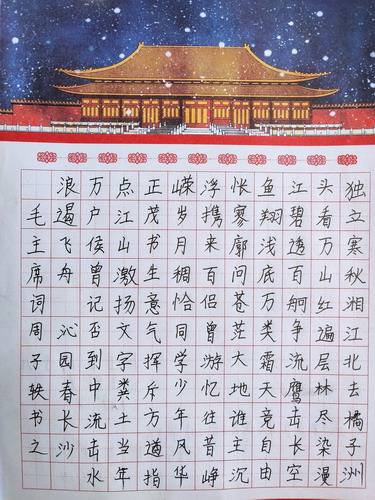 独立寒秋湘江北去橘子洲
头看万山红遍层林尽染漫
江碧透百舸争流鹰击长空
鱼翔浅底万类霜天竞自由
怅寥廓问苍茫大地谁主沉
浮携来百侣曾游忆往昔峥
嵘岁月稠恰同学少年风华
正茂书生意气挥斥方遒指
点江山激扬文字粪土当年
万户侯曾记否到中流击水
浪遏飞舟 沁园春长沙
毛主席词周子轶书之